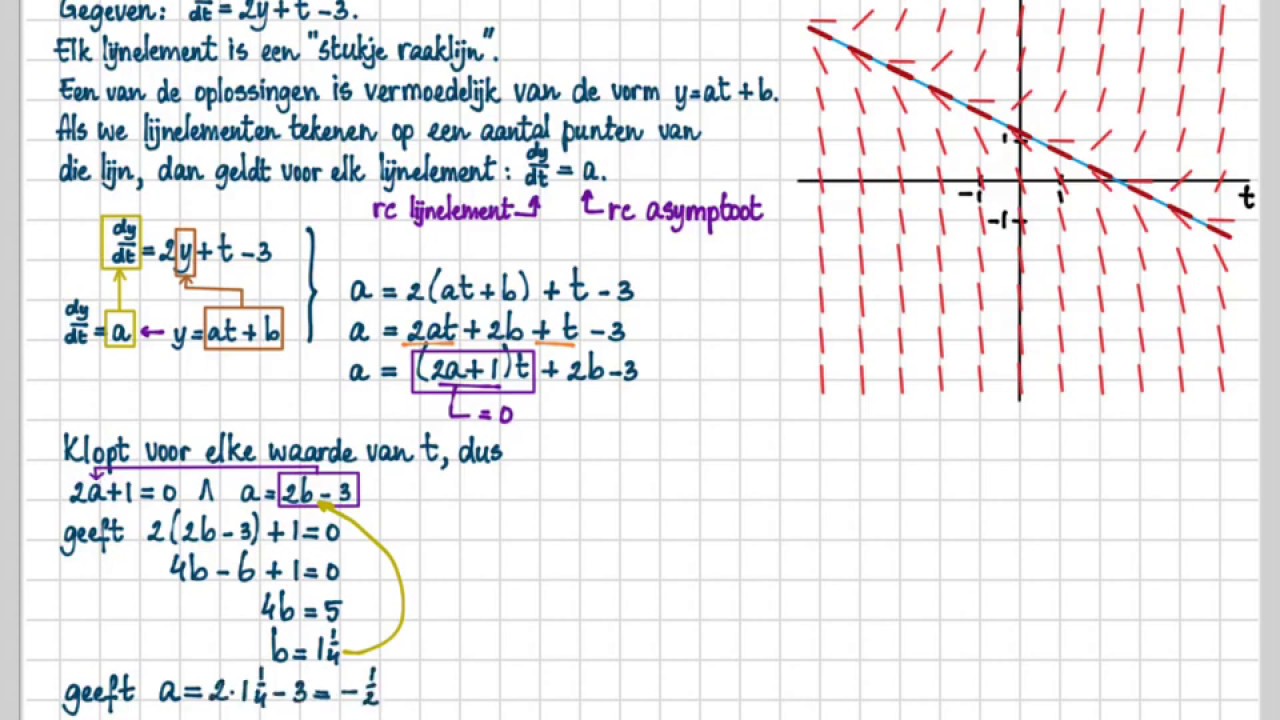 Gegeven: dy/dt = 2y + t - 3.
Elk lijnelement is een "stukje raaklijn".
Een van de oplossingen is vermoedelijk van de vorm y=at + b.
Als we lijnelementen tekenen op een aantal punten van
die lijn, dan geldt voor elk lijnelement : dy/dt = a.
rc lijnelement
rc asymptoot
dy/dt = 2y + t - 3
dy/dt = a ← y = at + b
a = 2(at + b) + t - 3
a = 2at + 2b + t - 3
a = (2a+1)t + 2b - 3
= 0
Klopt voor elke waarde van t, dus
2a+1 = 0 ∧ a = 2b - 3
geeft 2(2b - 3) + 1 = 0
4b - 6 + 1 = 0
4b = 5
b = 1 1/4
geeft a = 2·1 1/4 - 3 = - 1/2
1
-1
1
t
-1